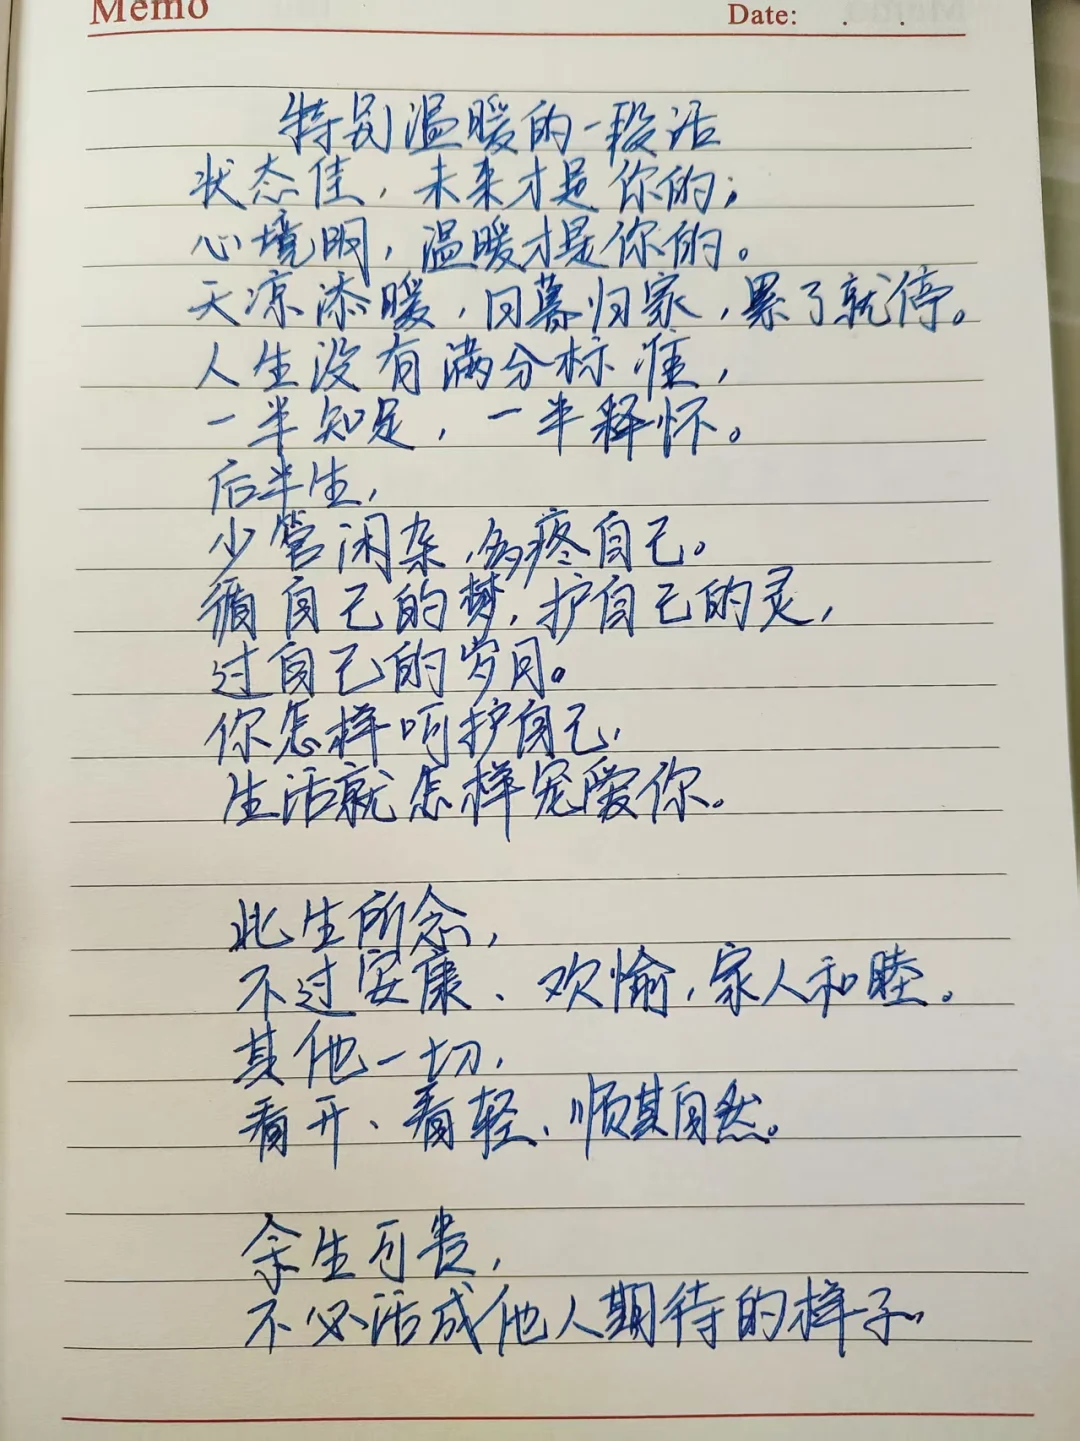 Memo
Date: . .
特别温暖的一段话
状态佳，未来才是你的；
心境明，温暖才是你的。
天凉添暖，日暮归家，累了就停。
人生没有满分标准，
一半知足，一半释怀。
后半生，
少管闲杂，多疼自己。
循自己的梦，护自己的灵，
过自己的岁月。
你怎样呵护自己，
生活就怎样宠爱你。
此生所念，
不过安康、欢愉，家人和睦。
其他一切，
看开、看轻、顺其自然。
余生可贵，
不必活成他人期待的样子。